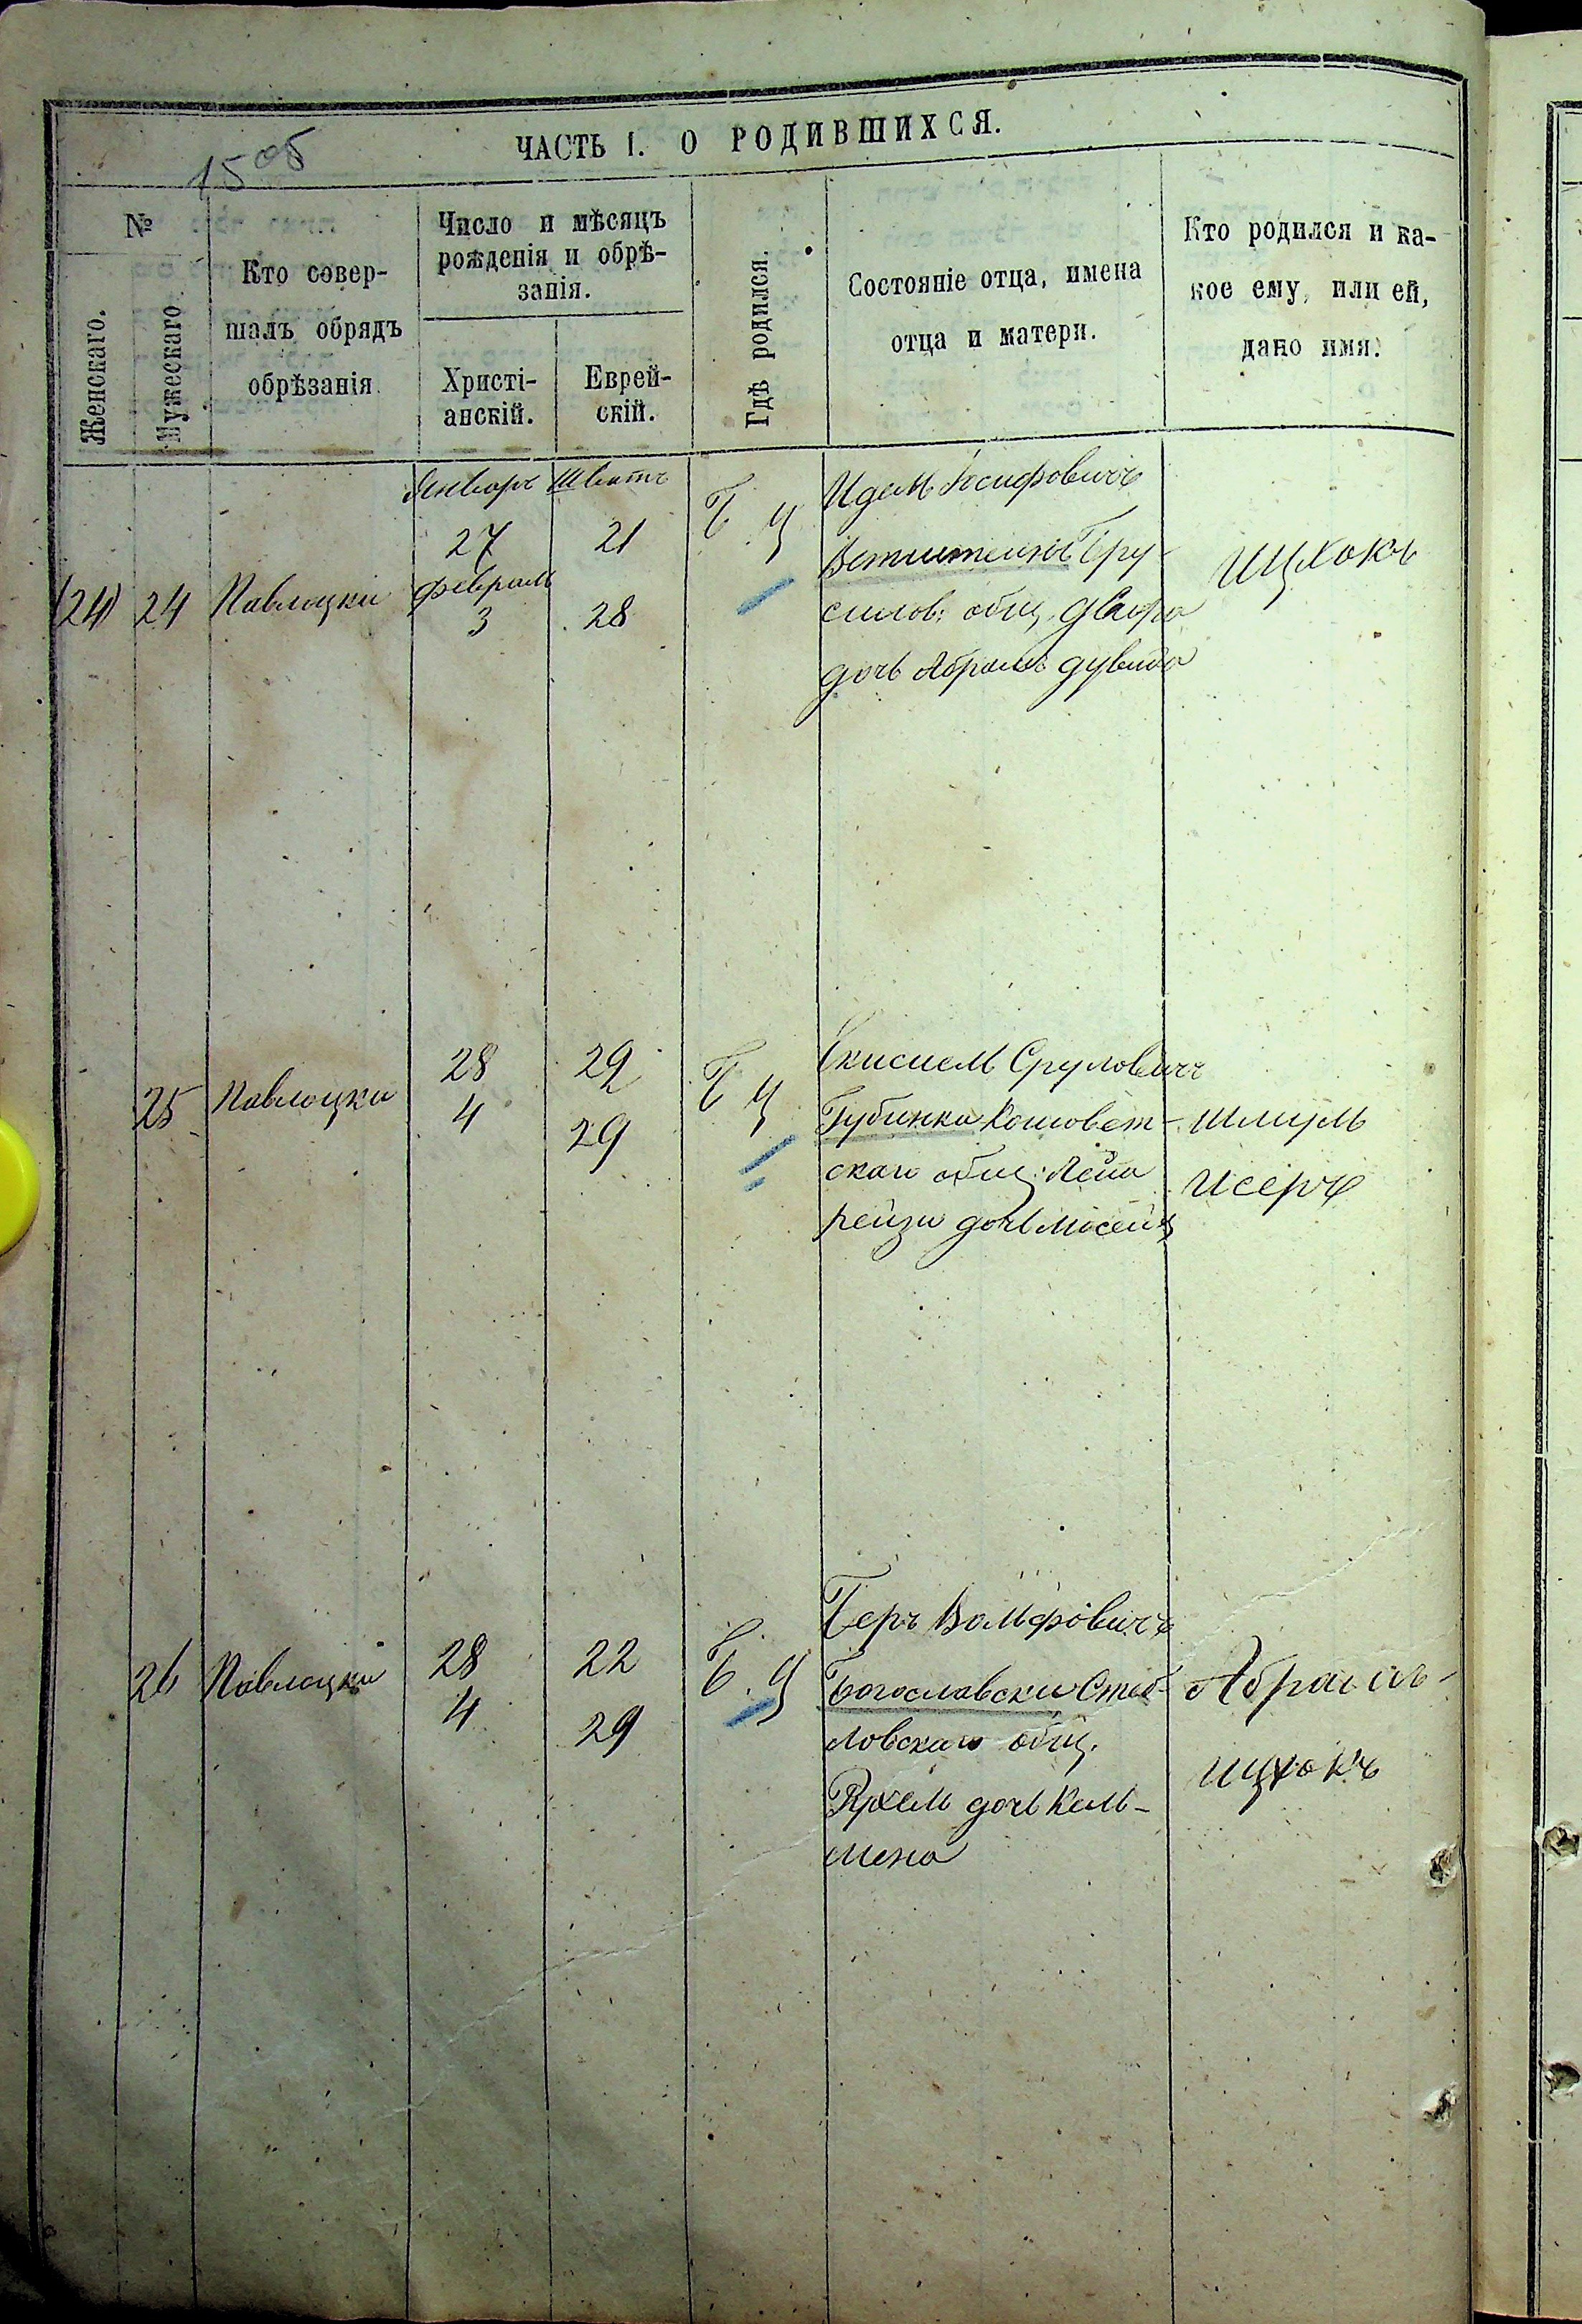 ЧАСТЬ I. О РОДИВШИХСЯ.
15об
№
Женскаго.
Мужескаго
Кто совер-
шалъ обрядъ
обрѣзанія
Число и мѣсяцъ
рожденія и обрѣ-
занія.
Христі-
анскій.
Еврей-
скій.
Гдѣ родился.
Состояніе отца, имена
отца и матери.
Кто родился и ка-
кое ему, или ей,
дано имя.
Январь Шватъ
(24) 24 Павлоцки
27 21
февраль
3 28
Б Ц
Идель Іосифовичъ
Бру-
силов: общ. двойра
дочь Абрамъ дувида
Ицхокъ
25 Павлоцки
28 29
4 29
Б Ц
Екисиель Сруловичъ
Губинки Кошоват-
скаго общ: Лейа
рейзи дочь Мосейя
Шлиумъ
Исеръ
26 Павлоцки
28 22
4 29
Б. Ц
Беръ Вольфовичъ
Богославски Стеб-
ловскаго общ.
Рухель дочь Кель-
мена
Абрамъ-
ицхокъ